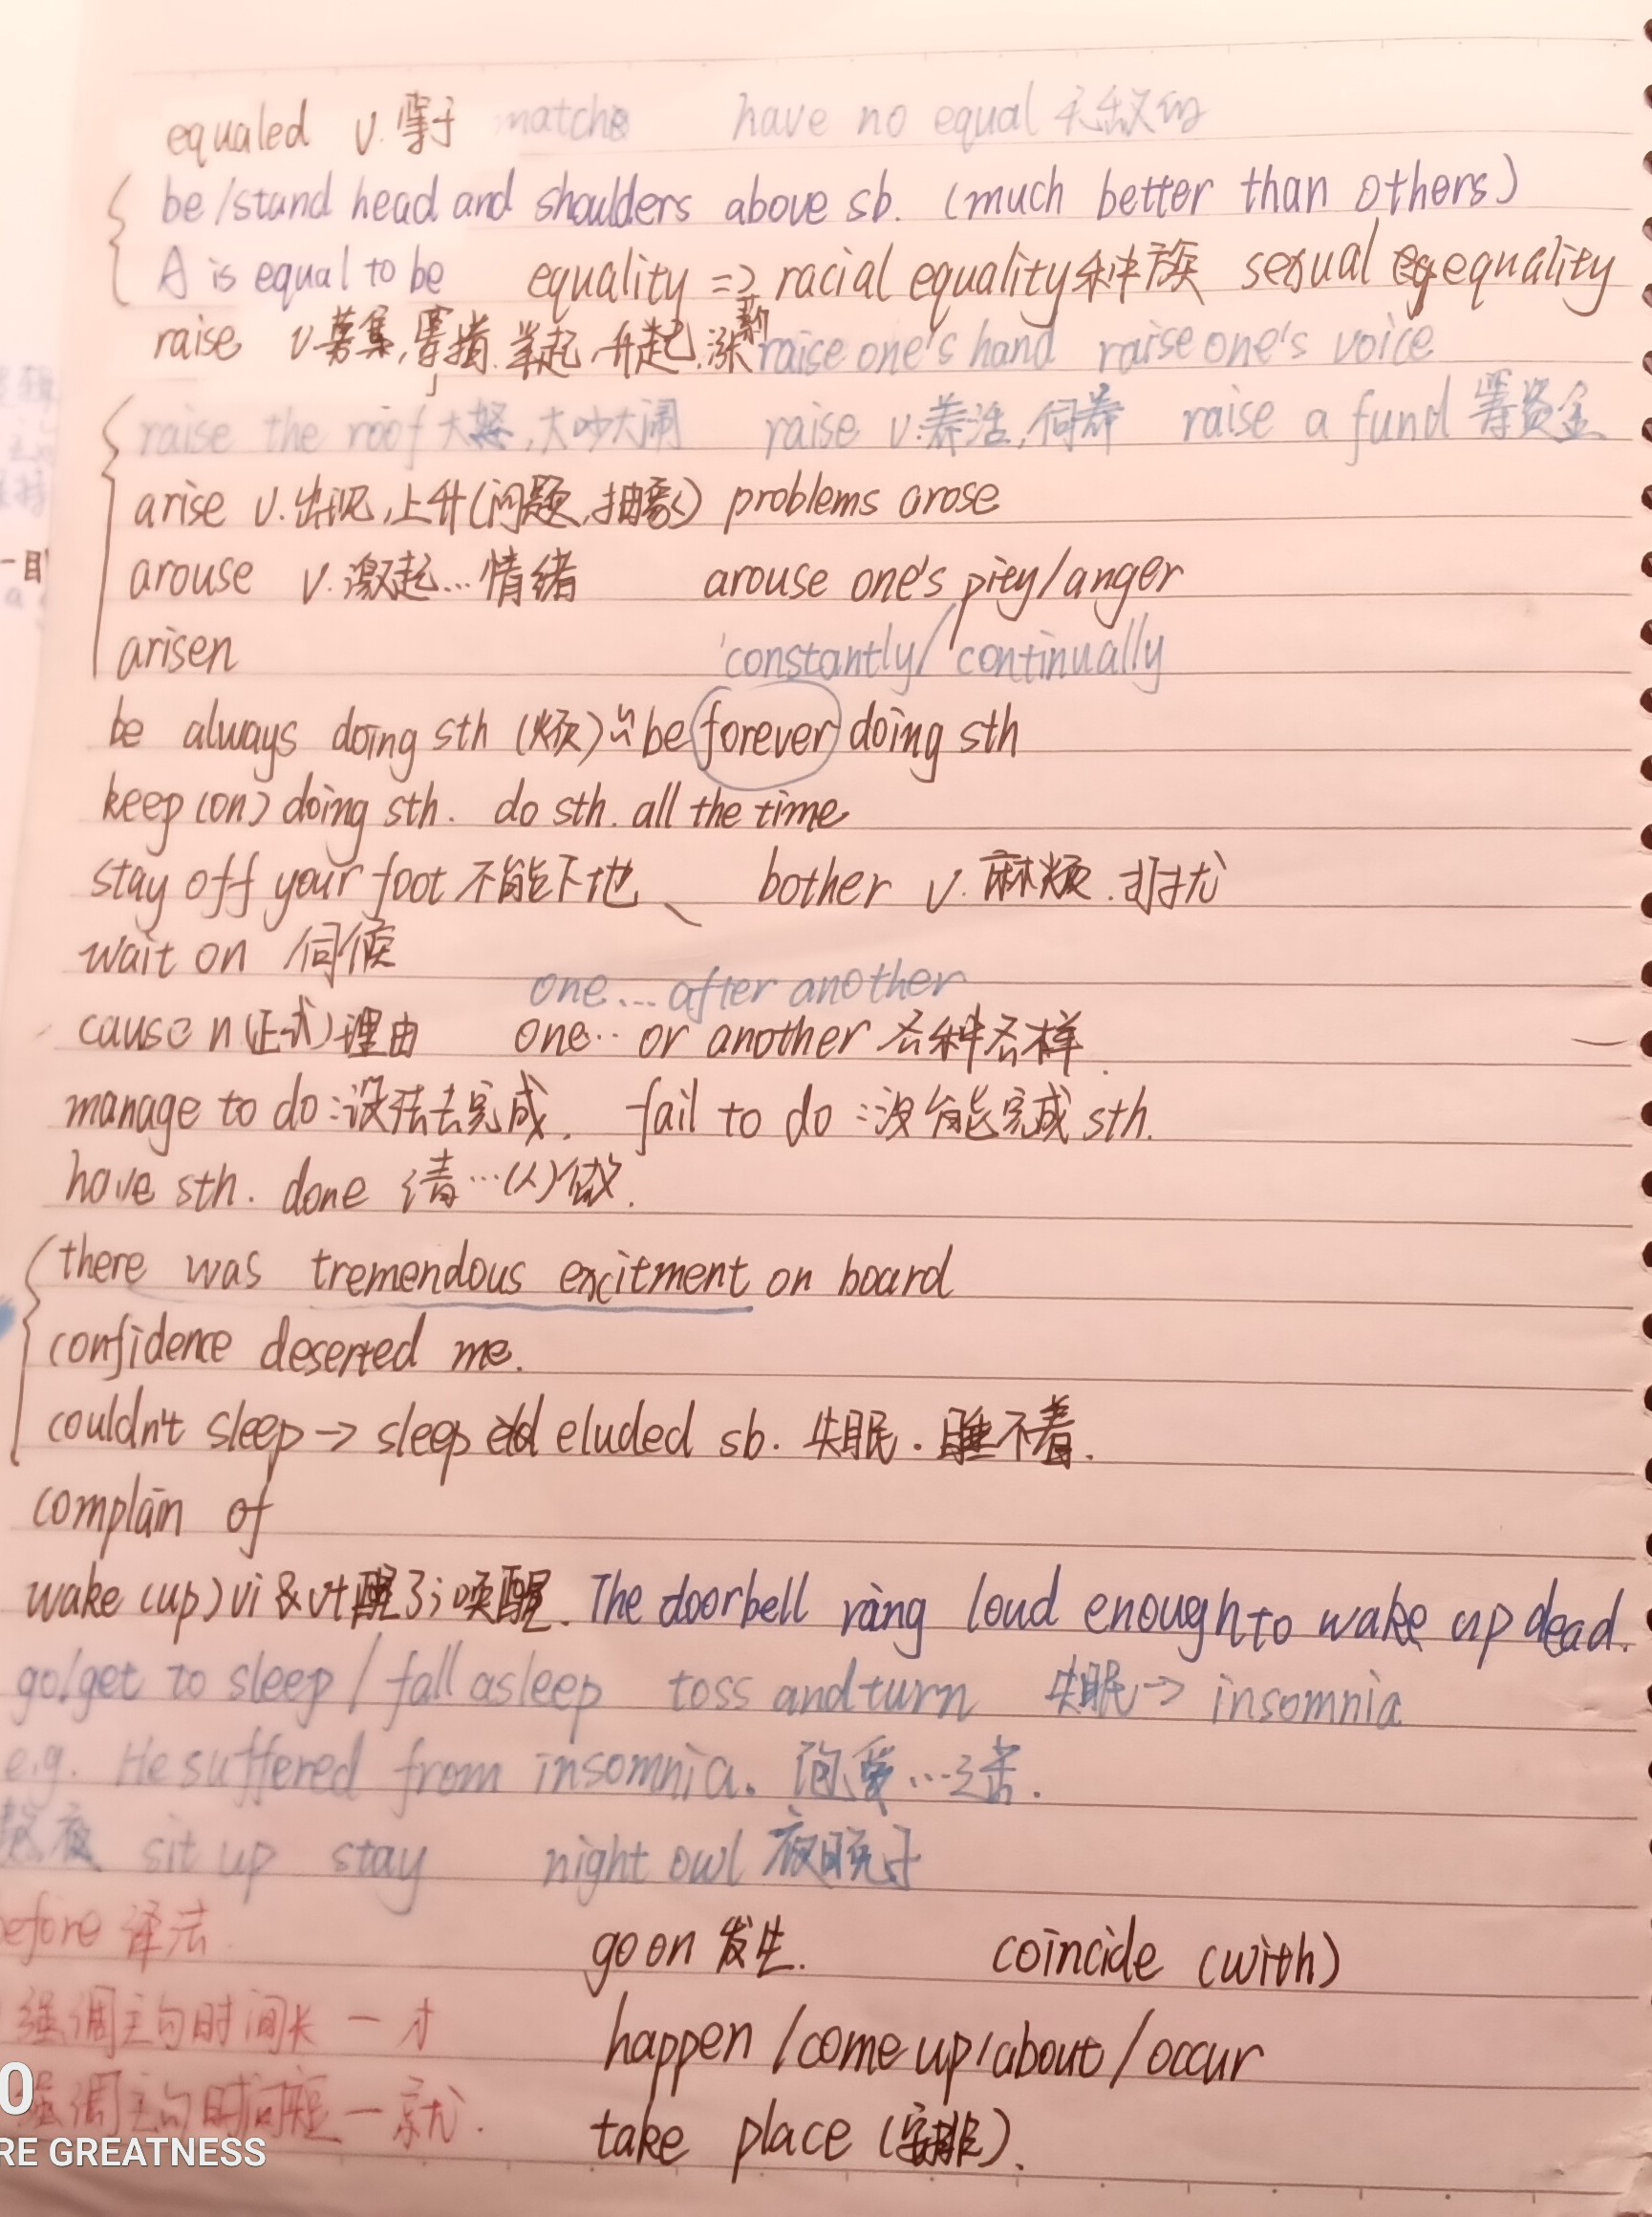 equaled v.等于 match have no equal 无敌的
be/stand head and shoulders above sb. (much better than others)
A is equal to be equality => racial equality 种族 sexual equality
raise v募集,筹措.举起,升起.涨薪 raise one's hand raise one's voice
raise the roof 大怒,大吵大闹 raise v.养活,伺养 raise a fund 筹资金
arise v.出现,上升(问题,抽象) problems arose
arouse v.激起...情绪 arouse one's pity/anger
arisen constantly/continually
be always doing sth (烦) be forever doing sth
keep (on) doing sth. do sth. all the time
stay off your foot 不能下地、 bother v.麻烦.打扰
wait on 伺候
one... after another
cause n(正式)理由 one... or another 各种各样
manage to do:设法去完成. fail to do:没能完成 sth.
have sth. done 请...(人)做.
there was tremendous excitment on board
confidence deserted me.
couldn't sleep → sleep eluded sb. 失眠.睡不着.
complain of
wake (up) vi & vt 醒了;唤醒. The doorbell rang loud enough to wake up dead.
go/get to sleep / fall asleep toss and turn 失眠→ insomnia
e.g. He suffered from insomnia. 饱受...之苦.
熬夜 sit up stay night owl 夜晚子
before 译法. go on 发生. coincide (with)
强调主句时间长 一 才 happen /come up/about/occur
强调主句时间短 一 就. take place (安排).
0
RE GREATNESS